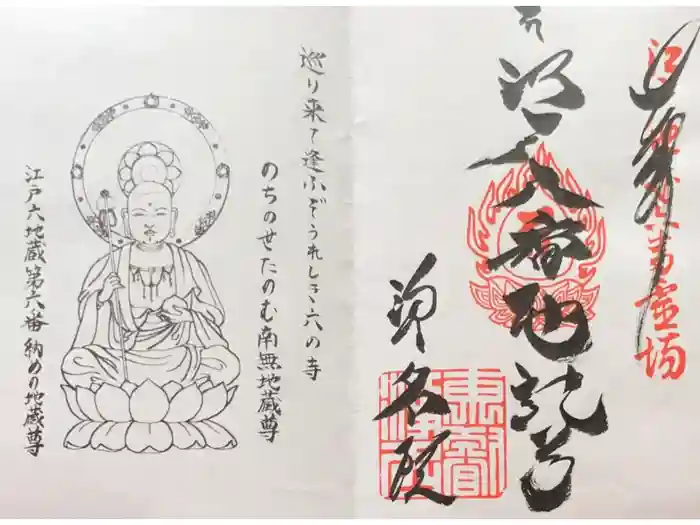 奉拝
江戸六番地蔵尊
浄名院
江戸六地蔵第六番霊場
東叡
浄名院
巡り来て逢ふぞうれしき六の寺
のちのせたのむ南無地蔵尊
江戸六地蔵第六番 納めの地蔵尊